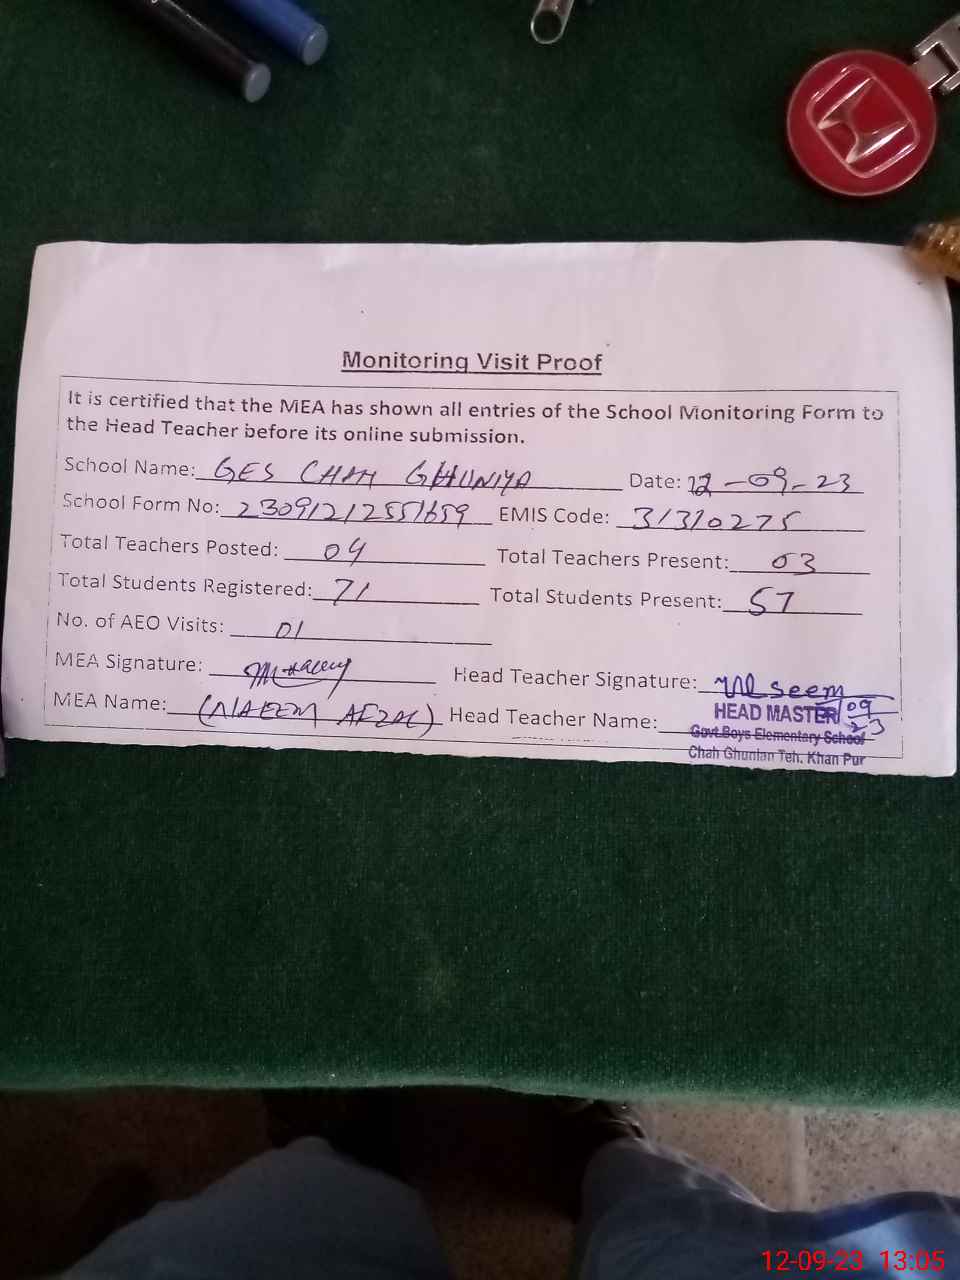 Monitoring Visit Proof
It is certified that the MEA has shown all entries of the School Monitoring Form to
the Head Teacher before its online submission.
School Name: GES CHAH GHUNIYA Date: 12-09-23
School Form No: 23091212551659 EMIS Code: 31310275
Total Teachers Posted: 04 Total Teachers Present: 03
Total Students Registered: 71 Total Students Present: 57
No. of AEO Visits: 01
MEA Signature: Head Teacher Signature:
MEA Name: (NAEEM AFZAL) Head Teacher Name:
HEAD MASTER
Govt.Boys Elementary School
Chah Ghunian Teh. Khan Pur
12-09-23 13:05